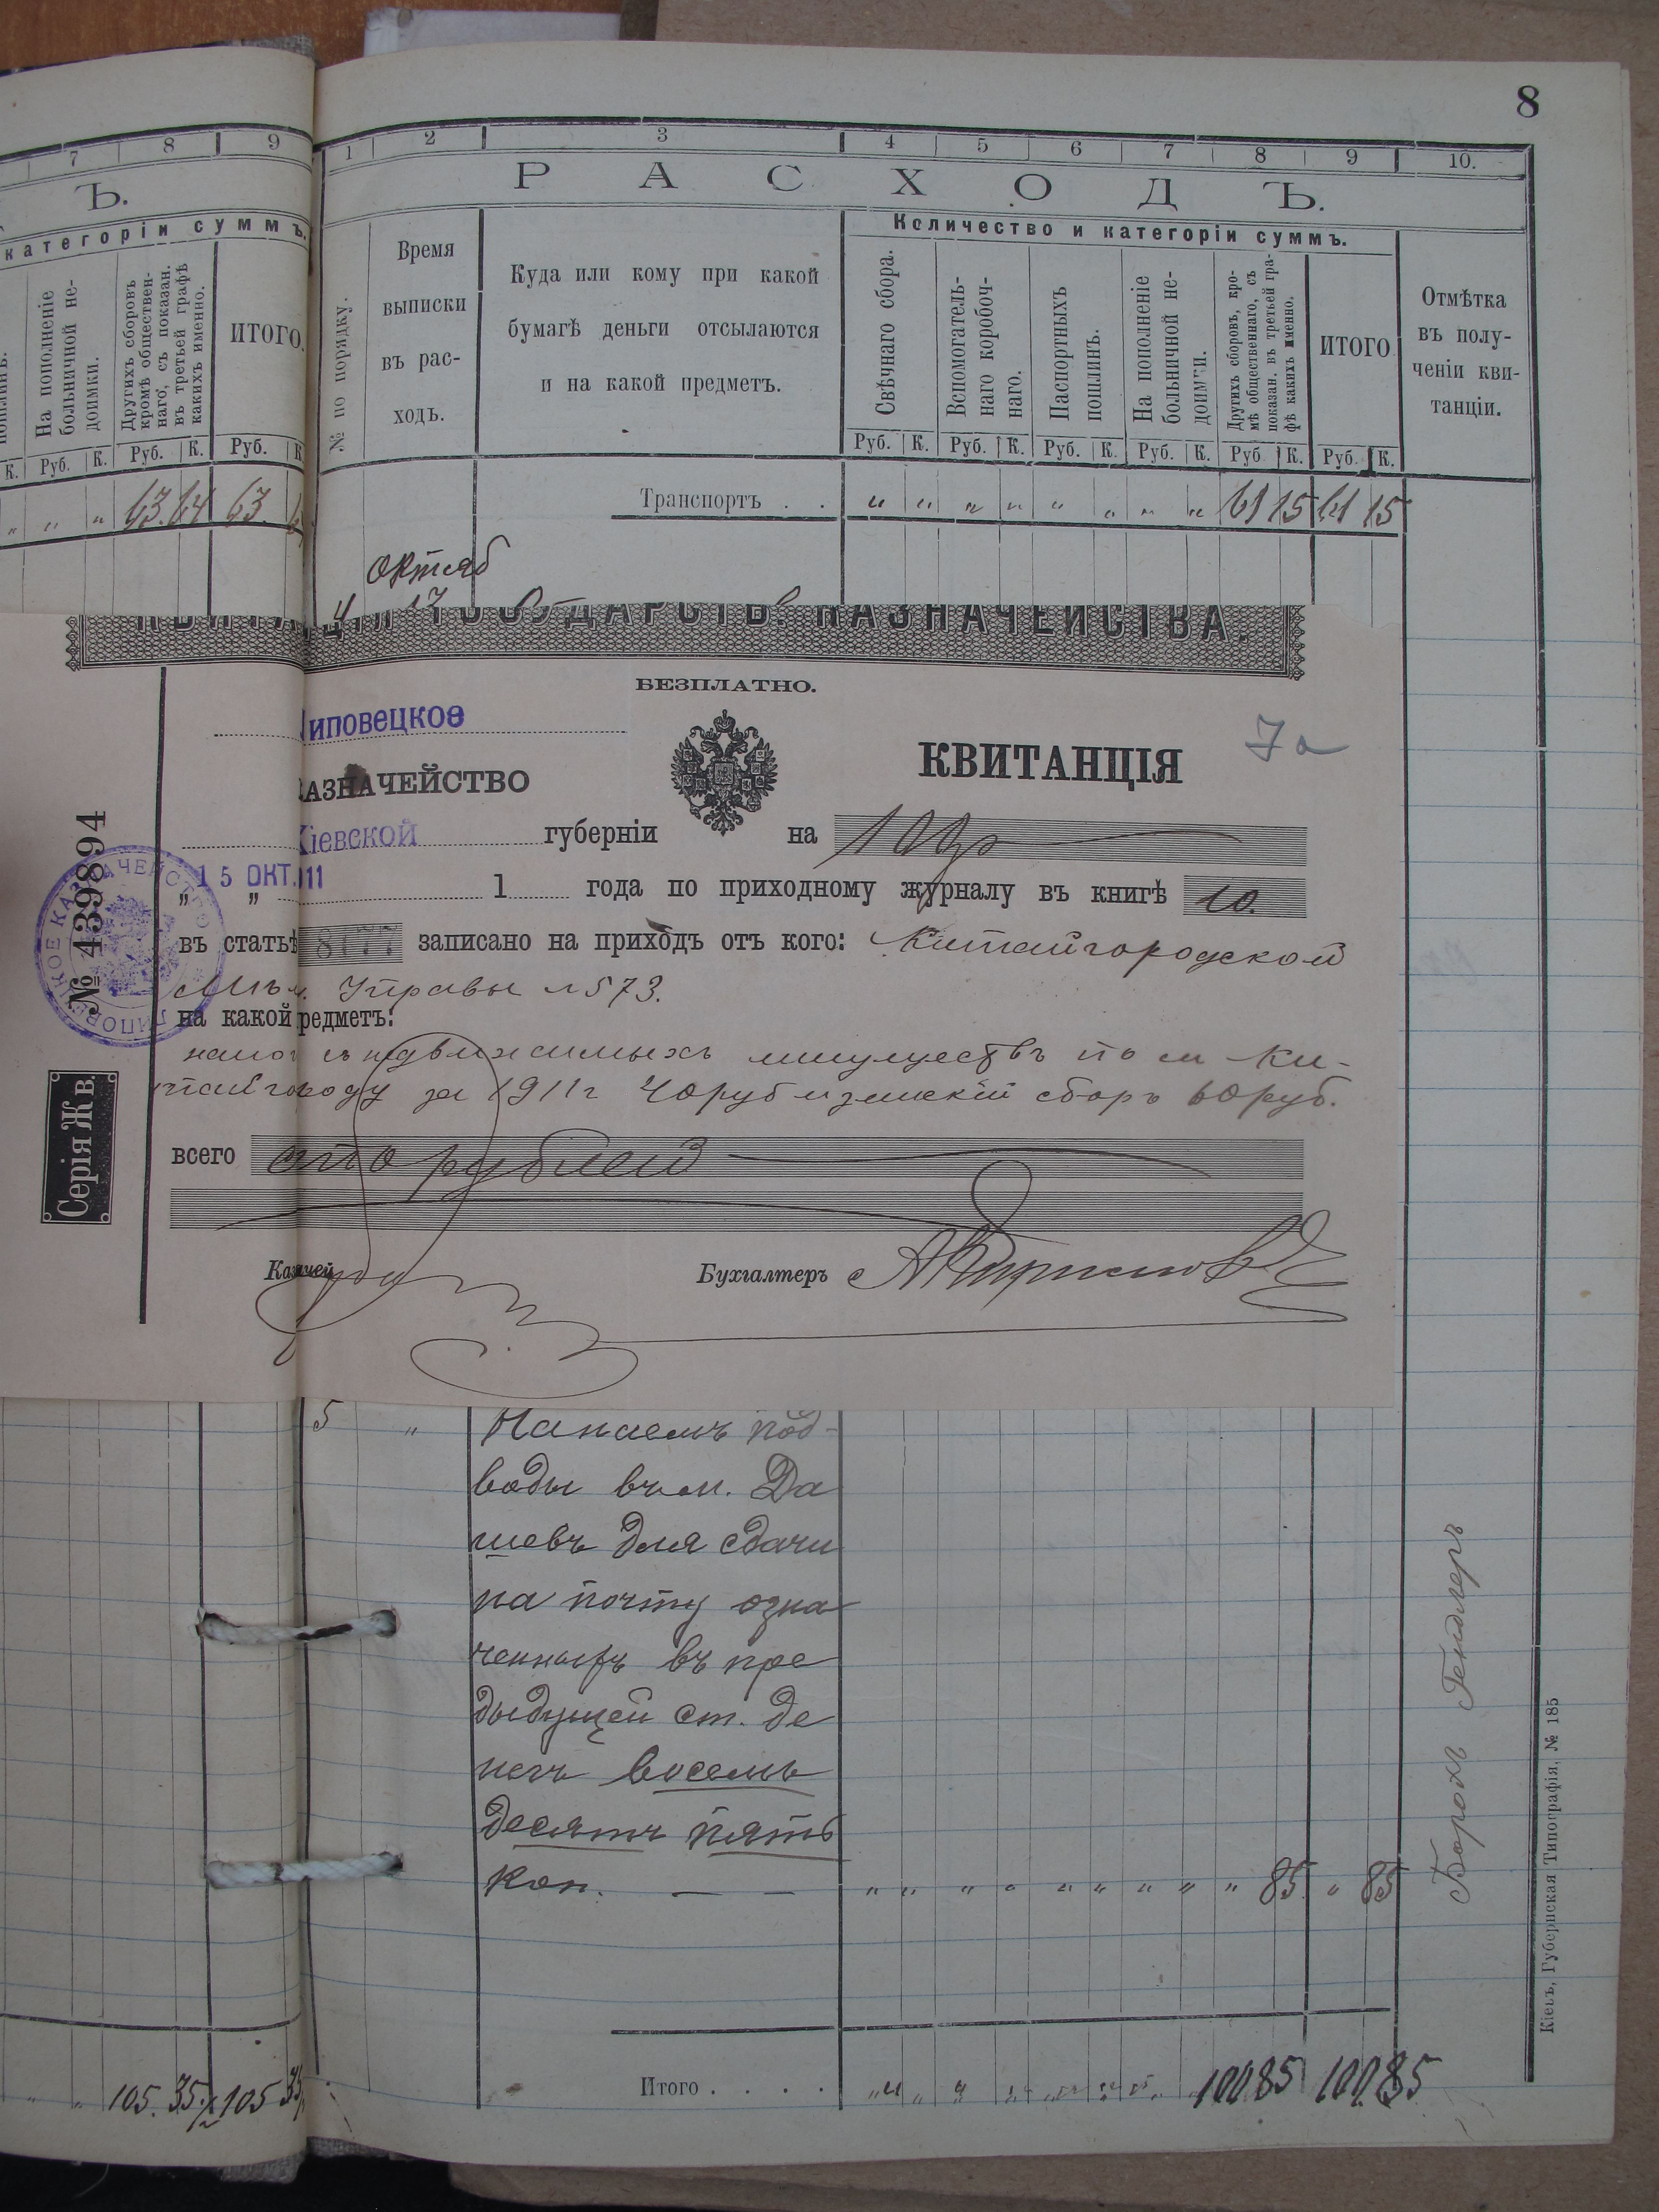 8
7 8 9
Ъ.
категоріи суммъ.
На пополненіе больничной недоимки.
Другихъ сборовъ кромѣ общественнаго, съ показан. въ третьей графѣ какихъ именно.
ИТОГО.
К. Руб. К. Руб. К. Руб. К
„ „ „ 63. 64 63.
1 2 3 4 5 6 7 8 9 10.
РАСХОДЪ.
№ по порядку.
Время
выписки
въ рас-
ходъ.
Куда или кому при какой
бумагѣ деньги отсылаются
и на какой предметъ.
Количество и категоріи суммъ.
Свѣчнаго сбора.
Вспомогатель-
наго коробоч-
наго.
Паспортныхъ
пошлинъ.
На пополненіе
больничной не-
доимки.
Другихъ сборовъ, кро-
мѣ общественнаго, съ
показан. въ третьей гра-
фѣ какихъ именно.
ИТОГО
Отмѣтка
въ полу-
ченіи кви-
танціи.
Руб. К. Руб. К. Руб. К. Руб. К. Руб К. Руб. К.
Транспортъ . . „ „ „ „ „ „ „ „ 61 15 61 15
Октяб
4 17
КВИТАНЦІЯ ГОСУДАРСТВ. КАЗНАЧЕЙСТВА.
БЕЗПЛАТНО.
иповецкое
АЗНАЧЕЙСТВО
КВИТАНЦІЯ
7а
іевской губерніи на 100р
15 ОКТ. 11
„ „ 1 года по приходному журналу въ книгѣ 10.
въ статьѣ 8177 записано на приходъ отъ кого: Китайгородской
Мѣщ. Управы № 573.
на какой редметъ:
налог съ недвижимыхъ имуществъ по м Ки-
тайгороду за 1911 г 40 руб и земскій сборъ 60 руб.
всего сто рублей
Казчей
Бухгалтеръ
№ 439894
ЛИПОВЕЦКОЕ КАЗНАЧЕЙСТВО
Серія Ж в.
5 „ Нанаемъ под-
воды въ м. Да
шевъ для сдачи
на почту озна
ченныхъ въ пре
дыдущей ст. де
негъ восемь
десятъ пять
коп. — — „ „ „ „ „ „ „ „ „ 85 „ 85
Борохъ Гендлеръ
105. 35. 105 35
Итого . . . . 100 85 100. 85
Кіевъ, Губернская Типографія, № 185